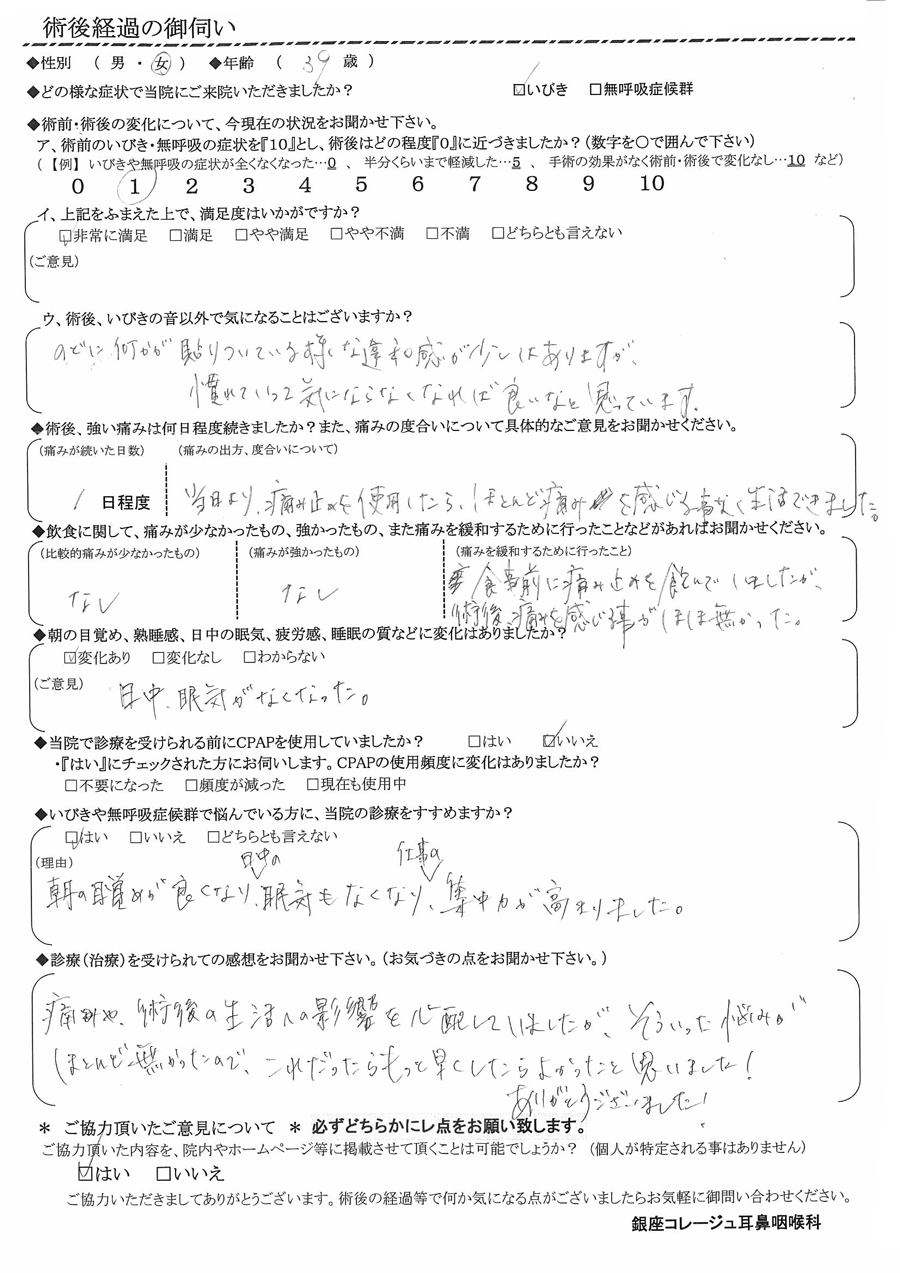 術後経過の御伺い
◆性別 （ 男 ・ 女 ） ◆年齢 （ 39 歳 ）
◆どの様な症状で当院にご来院いただきましたか？ ☑いびき □無呼吸症候群
◆術前・術後の変化について、今現在の状況をお聞かせ下さい。
ア、術前のいびき・無呼吸の症状を『10』とし、術後はどの程度『0』に近づきましたか？（数字を○で囲んで下さい）
（【例】 いびきや無呼吸の症状が全くなくなった…0 、 半分くらいまで軽減した…5 、 手術の効果がなく術前・術後で変化なし…10 など）
0 1 2 3 4 5 6 7 8 9 10
イ、上記をふまえた上で、満足度はいかがですか？
☑非常に満足 □満足 □やや満足 □やや不満 □不満 □どちらとも言えない
（ご意見）
ウ、術後、いびきの音以外で気になることはございますか？
のどに何かが貼りついている様な違和感が少しはありますが、
慣れていって気にならなくなれば良いなと思っています。
◆術後、強い痛みは何日程度続きましたか？また、痛みの度合いについて具体的なご意見をお聞かせください。
（痛みが続いた日数） （痛みの出方、度合いについて）
1 日程度 当日より、痛み止めを使用したら、ほとんど痛みを感じる事なく生活できました。
◆飲食に関して、痛みが少なかったもの、強かったもの、また痛みを緩和するために行ったことなどがあればお聞かせください。
（比較的痛みが少なかったもの） （痛みが強かったもの） （痛みを緩和するために行ったこと）
なし なし 食事前に痛み止めを飲んでいましたが、
術後、痛みを感じる事がほぼ無かった。
◆朝の目覚め、熟睡感、日中の眠気、疲労感、睡眠の質などに変化はありましたか？
☑変化あり □変化なし □わからない
（ご意見） 日中、眠気がなくなった。
◆当院で診療を受けられる前にCPAPを使用していましたか？ □はい ☑いいえ
・『はい』にチェックされた方にお伺いします。CPAPの使用頻度に変化はありましたか？
□不要になった □頻度が減った □現在も使用中
◆いびきや無呼吸症候群で悩んでいる方に、当院の診療をすすめますか？
☑はい □いいえ □どちらとも言えない
（理由） 日中の 仕事の
朝の目覚めが良くなり、眠気もなくなり、集中力が高まりました。
◆診療（治療）を受けられての感想をお聞かせ下さい。（お気づきの点をお聞かせ下さい。）
痛みや、術後の生活への影響を心配していましたが、そういった悩みが
ほとんど無かったので、これだったらもっと早くしたらよかったと思いました！
ありがとうございました！
＊ ご協力頂いたご意見について ＊ 必ずどちらかにレ点をお願い致します。
ご協力頂いた内容を、院内やホームページ等に掲載させて頂くことは可能でしょうか？（個人が特定される事はありません）
☑はい □いいえ
ご協力いただきましてありがとうございます。術後の経過等で何か気になる点がございましたらお気軽に御問い合わせください。
銀座コレージュ耳鼻咽喉科